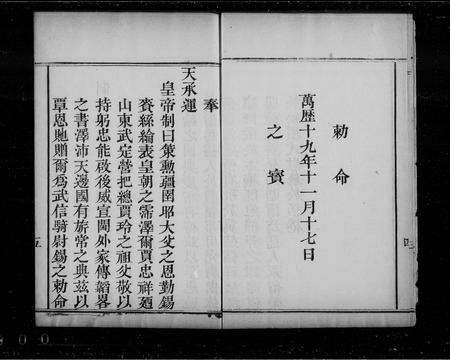 勅命
之寶
萬歷十九年十一月十七日
奉
天承運
皇帝制曰策勲疆圉昭大父之恩勤錫
賚絲綸表皇朝之霈澤爾賈忠祥廼
山東武定營把總賈玲之祖父敬以
持躬忠能啟後威宣閫外家傳韜畧
之書澤沛天邊國有旂常之典兹以
覃恩貤贈爾爲武信騎尉錫之勅命